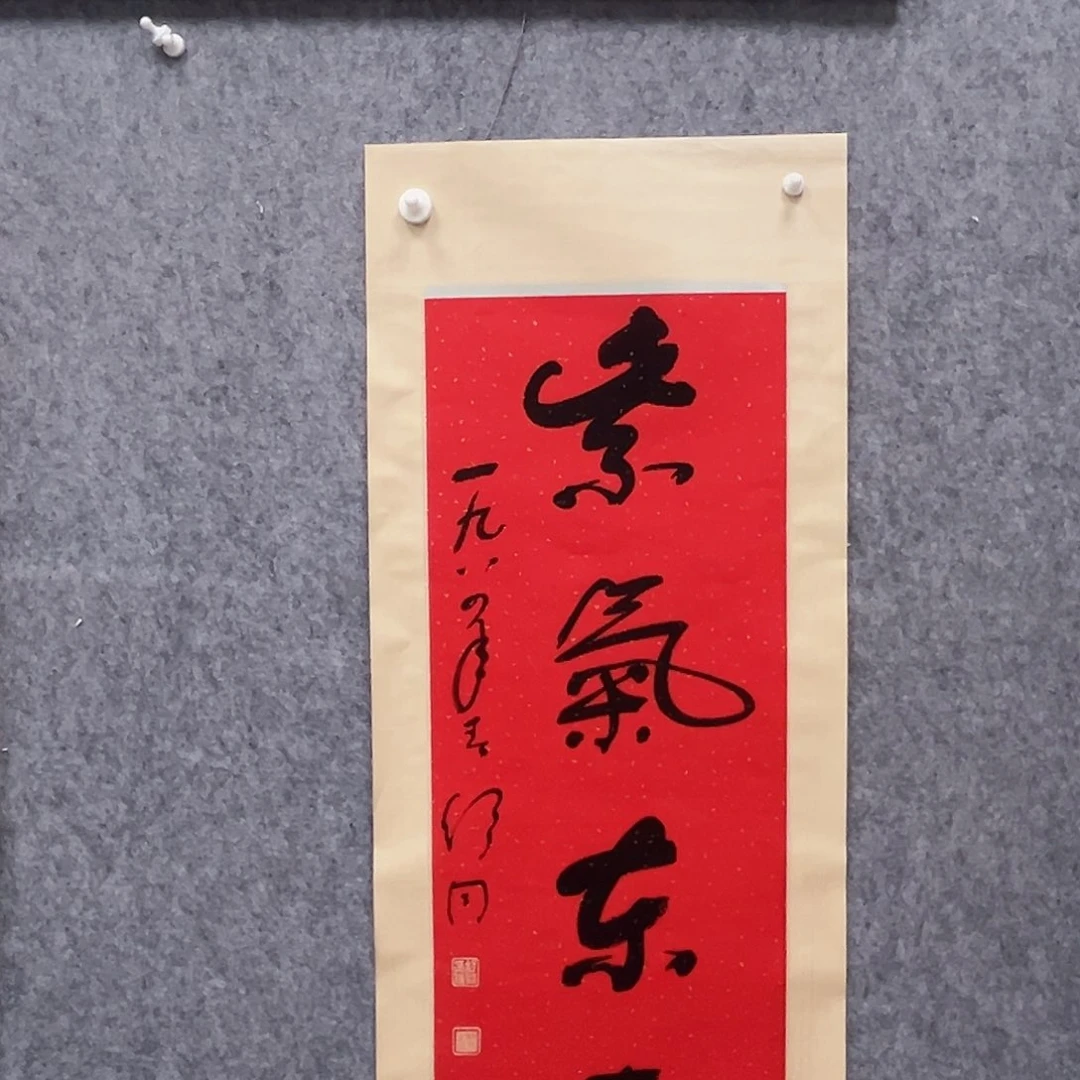 紫氣东
一九八四年春
舒同